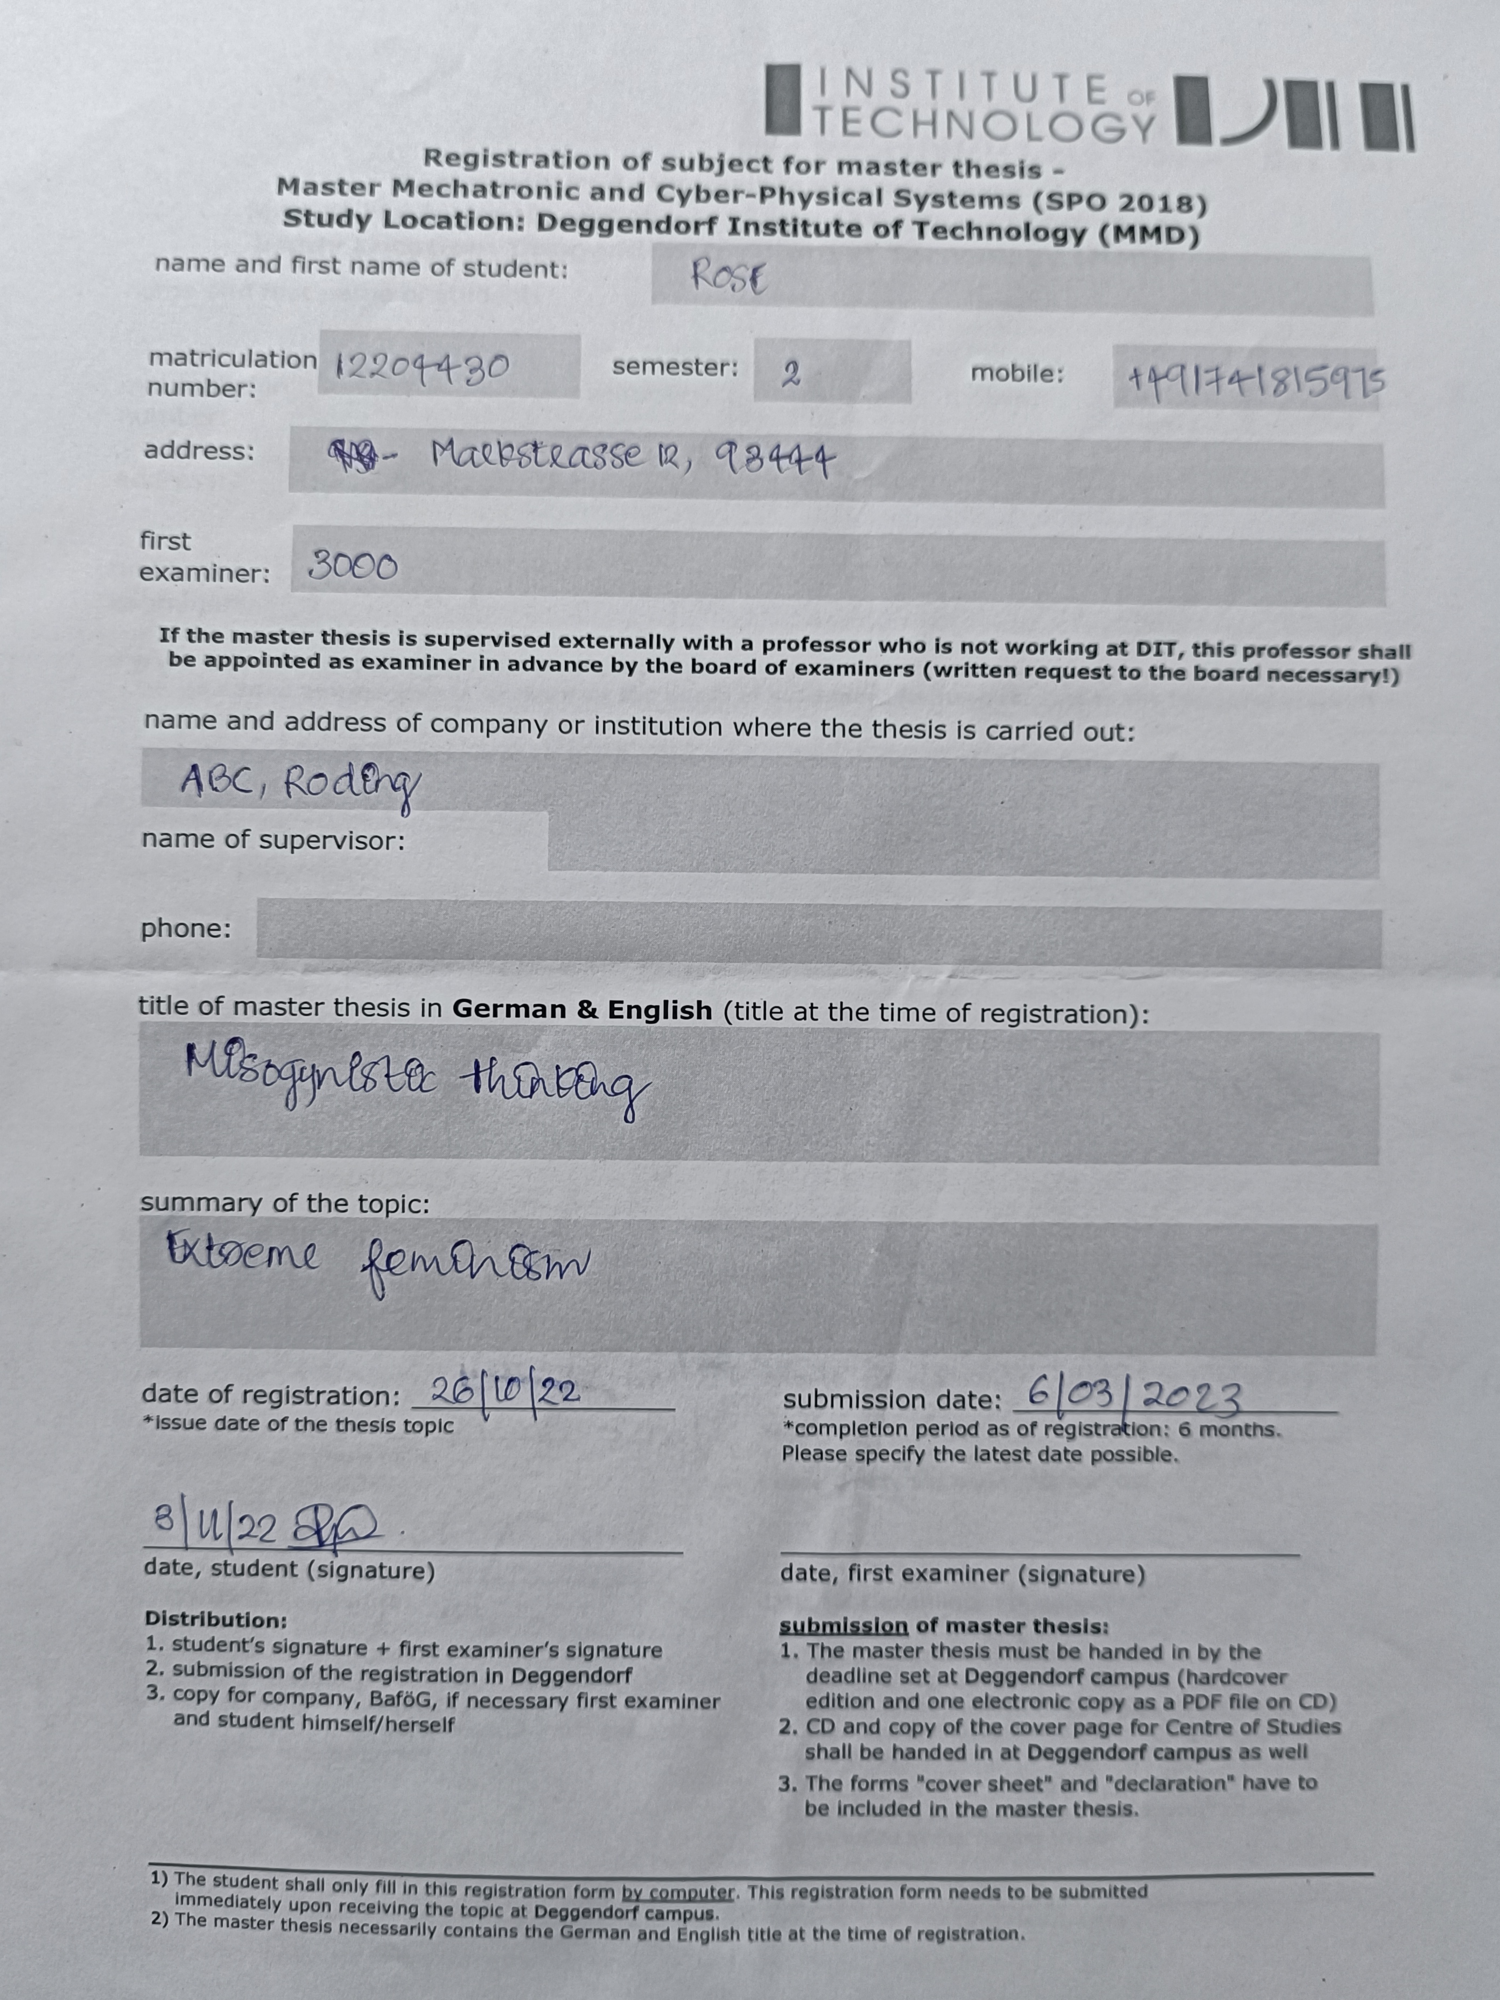 INSTITUTE OF
TECHNOLOGY
Registration of subject for master thesis -
Master Mechatronic and Cyber-Physical Systems (SPO 2018)
Study Location: Deggendorf Institute of Technology (MMD)
name and first name of student: ROSE
matriculation number: 12204430 semester: 2 mobile: +491741815975
address: Markstrasse 12, 93444
first examiner: 3000
If the master thesis is supervised externally with a professor who is not working at DIT, this professor shall
be appointed as examiner in advance by the board of examiners (written request to the board necessary!)
name and address of company or institution where the thesis is carried out:
ABC, Roding
name of supervisor:
phone:
title of master thesis in German & English (title at the time of registration):
Misogynistic thinking
summary of the topic:
Extreme feminism
date of registration: 26/10/22 submission date: 6/03/2023
*issue date of the thesis topic
*completion period as of registration: 6 months.
Please specify the latest date possible.
8/11/22
date, student (signature)
date, first examiner (signature)
Distribution:
1. student's signature + first examiner's signature
2. submission of the registration in Deggendorf
3. copy for company, BaföG, if necessary first examiner
and student himself/herself
submission of master thesis:
1. The master thesis must be handed in by the
deadline set at Deggendorf campus (hardcover
edition and one electronic copy as a PDF file on CD)
2. CD and copy of the cover page for Centre of Studies
shall be handed in at Deggendorf campus as well
3. The forms "cover sheet" and "declaration" have to
be included in the master thesis.
1) The student shall only fill in this registration form by computer. This registration form needs to be submitted
immediately upon receiving the topic at Deggendorf campus.
2) The master thesis necessarily contains the German and English title at the time of registration.